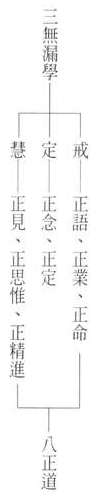 三無漏學
戒——正語、正業、正命
定——正念、正定
慧——正見、正思惟、正精進
八正道